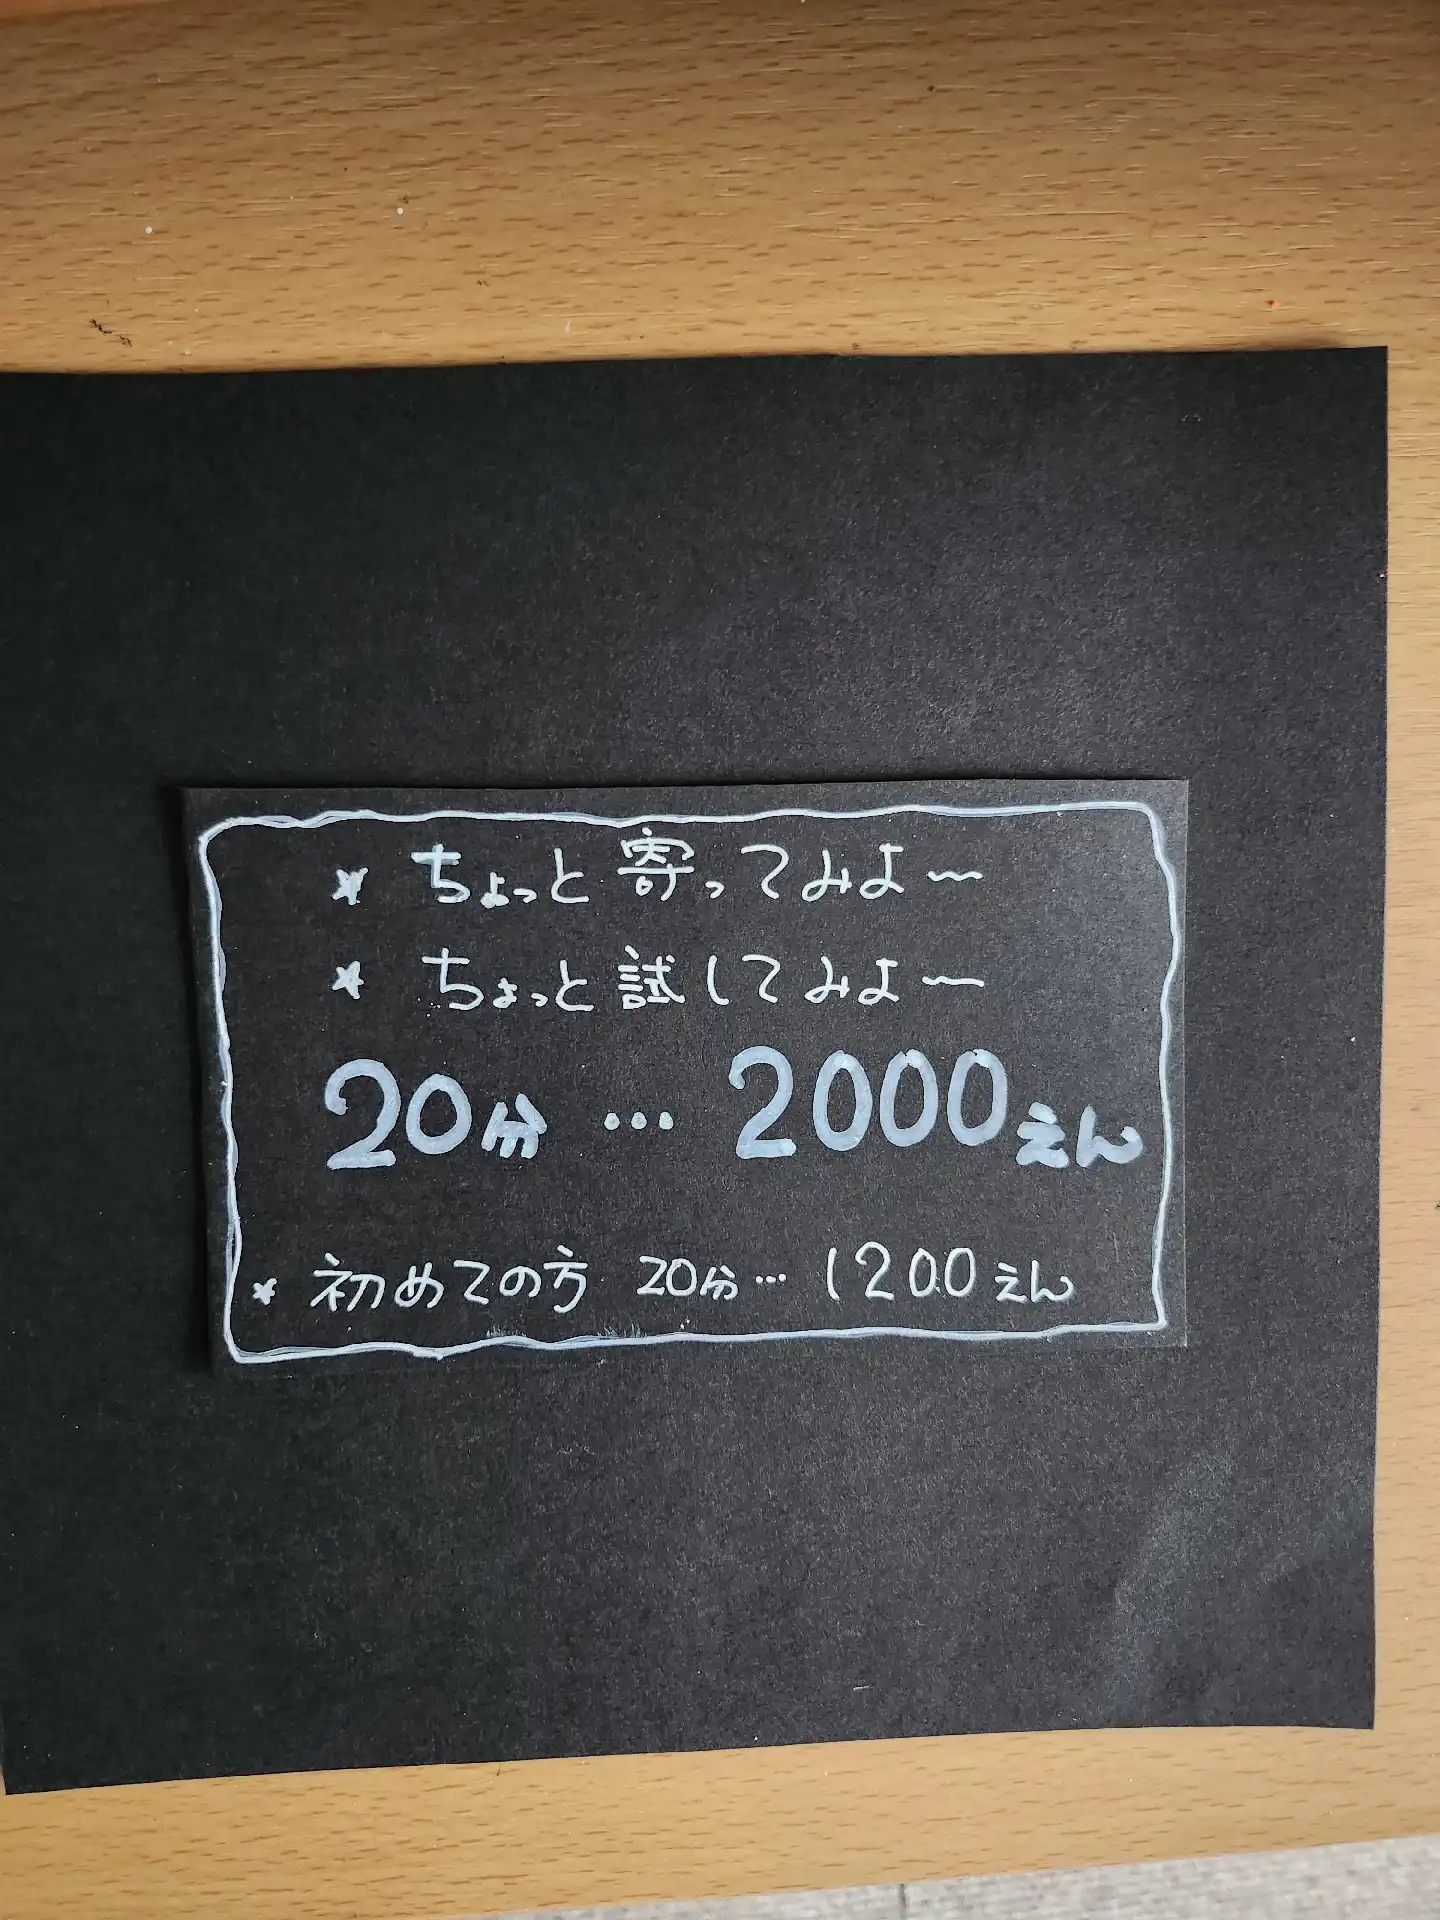 ★ ちょっと寄ってみよ〜
★ ちょっと試してみよ〜
20分 … 2000えん
★ 初めての方 20分… 1200えん